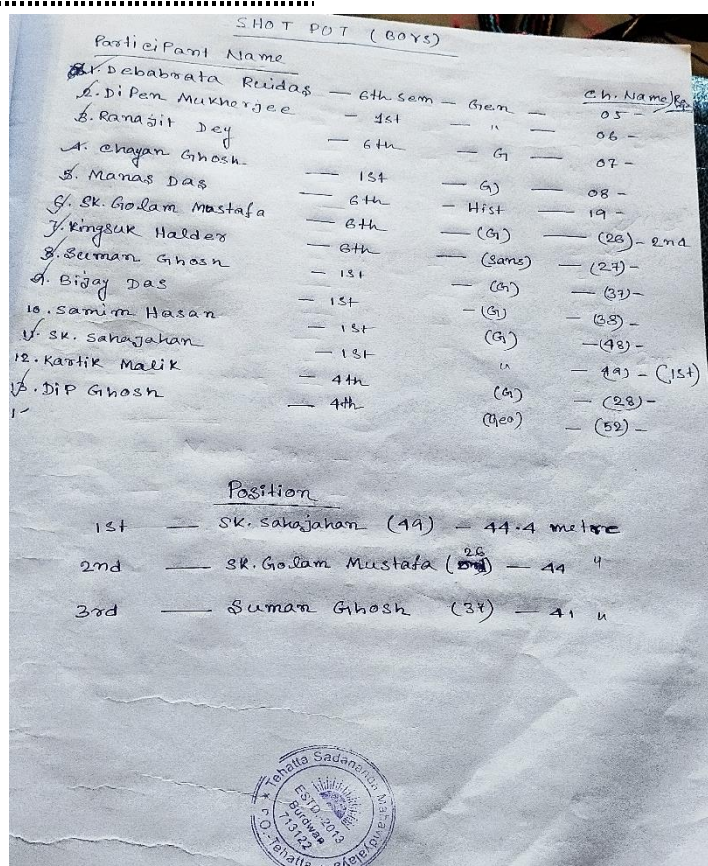 SHOT POT (BOYS)
Participant Name
Ch. Name
1. Debabrata Ruidas — 6th sem — Gen — 05 —
2. Dipen Mukherjee — 1st — " — 06 —
3. Ranajit Dey — 6th — G — 07 —
4. Chayan Ghosh — 1st — G) — 08 —
5. Manas Das — 6th — Hist — 19 —
6. SK. Golam Mastafa — 6th — (G) — (26) — 2nd
7. Kingsuk Halder — 6th — (Sans) — (27) —
8. Suman Ghosh — 1st — (G) — (37) —
9. Bijay Das — 1st — (G) — (38) —
10. Samim Hasan — 1st — (G) — (48) —
11. SK. Sahajahan — 1st " — 49) — (1st)
12. Kartik Malik — 4th (G) — (28) —
13. Dip Ghosh — 4th (Geo) — (52) —
Position
1st — SK. Sahajahan (49) — 44.4 metre
2nd — SK. Golam Mustafa (26) — 44 "
3rd — Suman Ghosh (37) — 41 "
Tehatta Sadananda Mahavidyalaya
ESTD.-2013
Burdwan
713122
P.O.-Tehatta